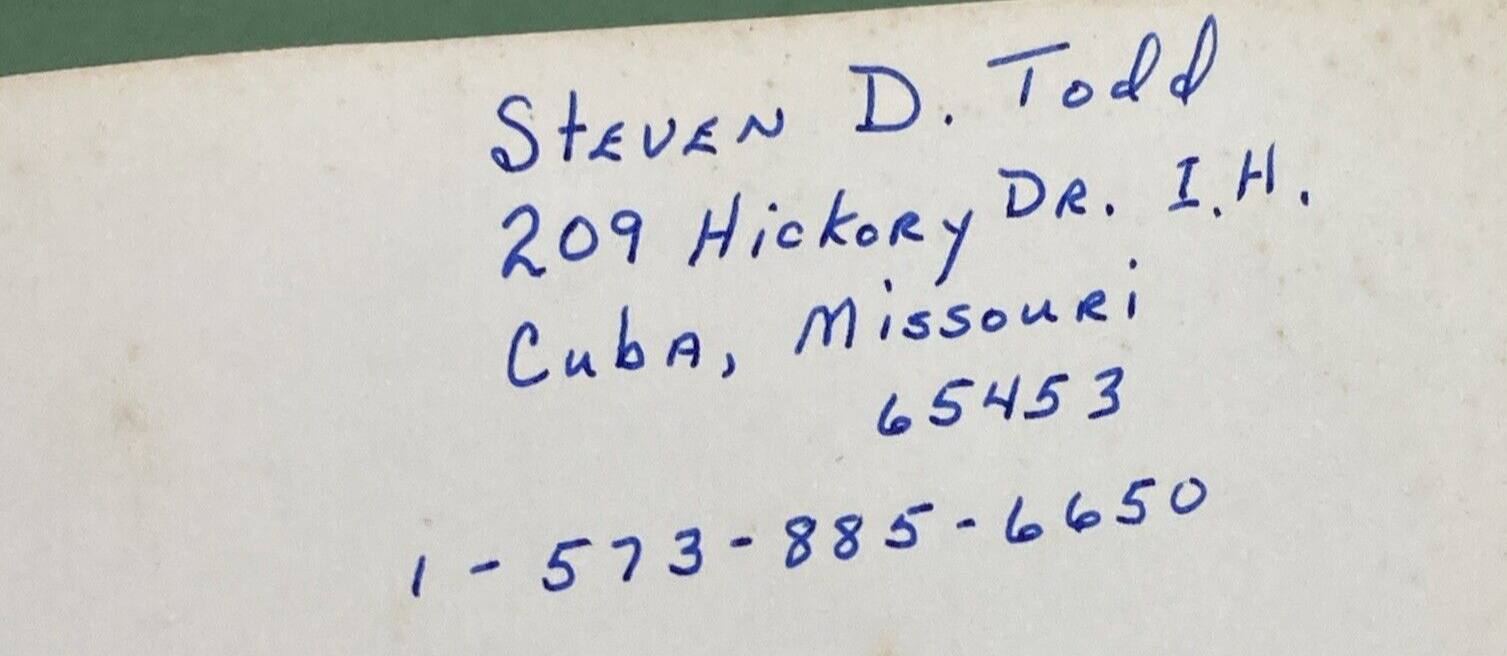 Steven D. Todd
209 Hickory Dr. I.H.
Cuba, Missouri
65453
1-573-885-6650